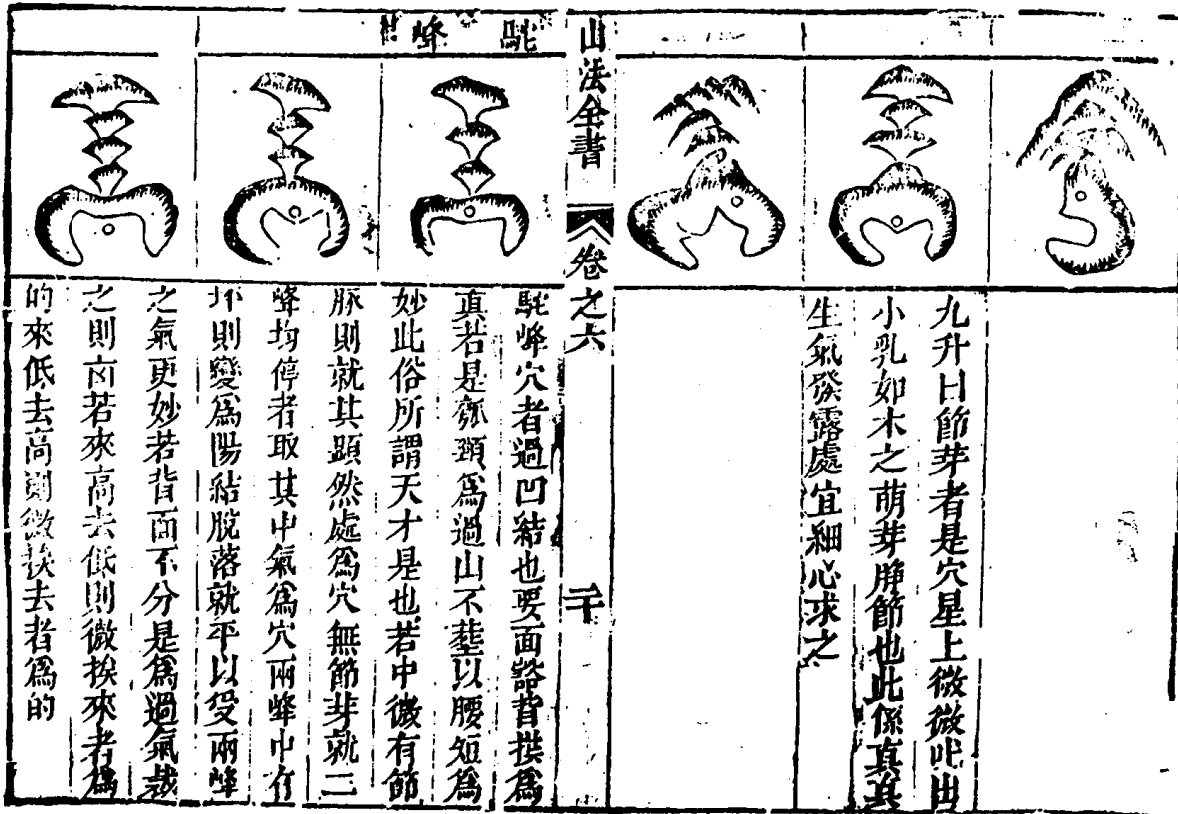 九升曰節芽者是穴星上微微吐出
小乳如木之萌芽胮節也此係真真
生氣發露處宜細心求之
山法全書
卷之六
二十
駝峰
駝峰穴者過凹結也要面豁背撲爲
真若是瓠頸爲過山不塟以腰短爲
妙此俗所謂天才是也若中微有節
脈則就其顯然處爲穴無節芽就二
峰均停者取其中氣爲穴兩峰中有
坏則變爲陽結脫落就平以受兩峰
之氣更妙若背面不分是爲過氣
之則若來高去低則微挨來者爲
的來低去高則微挨去者爲的